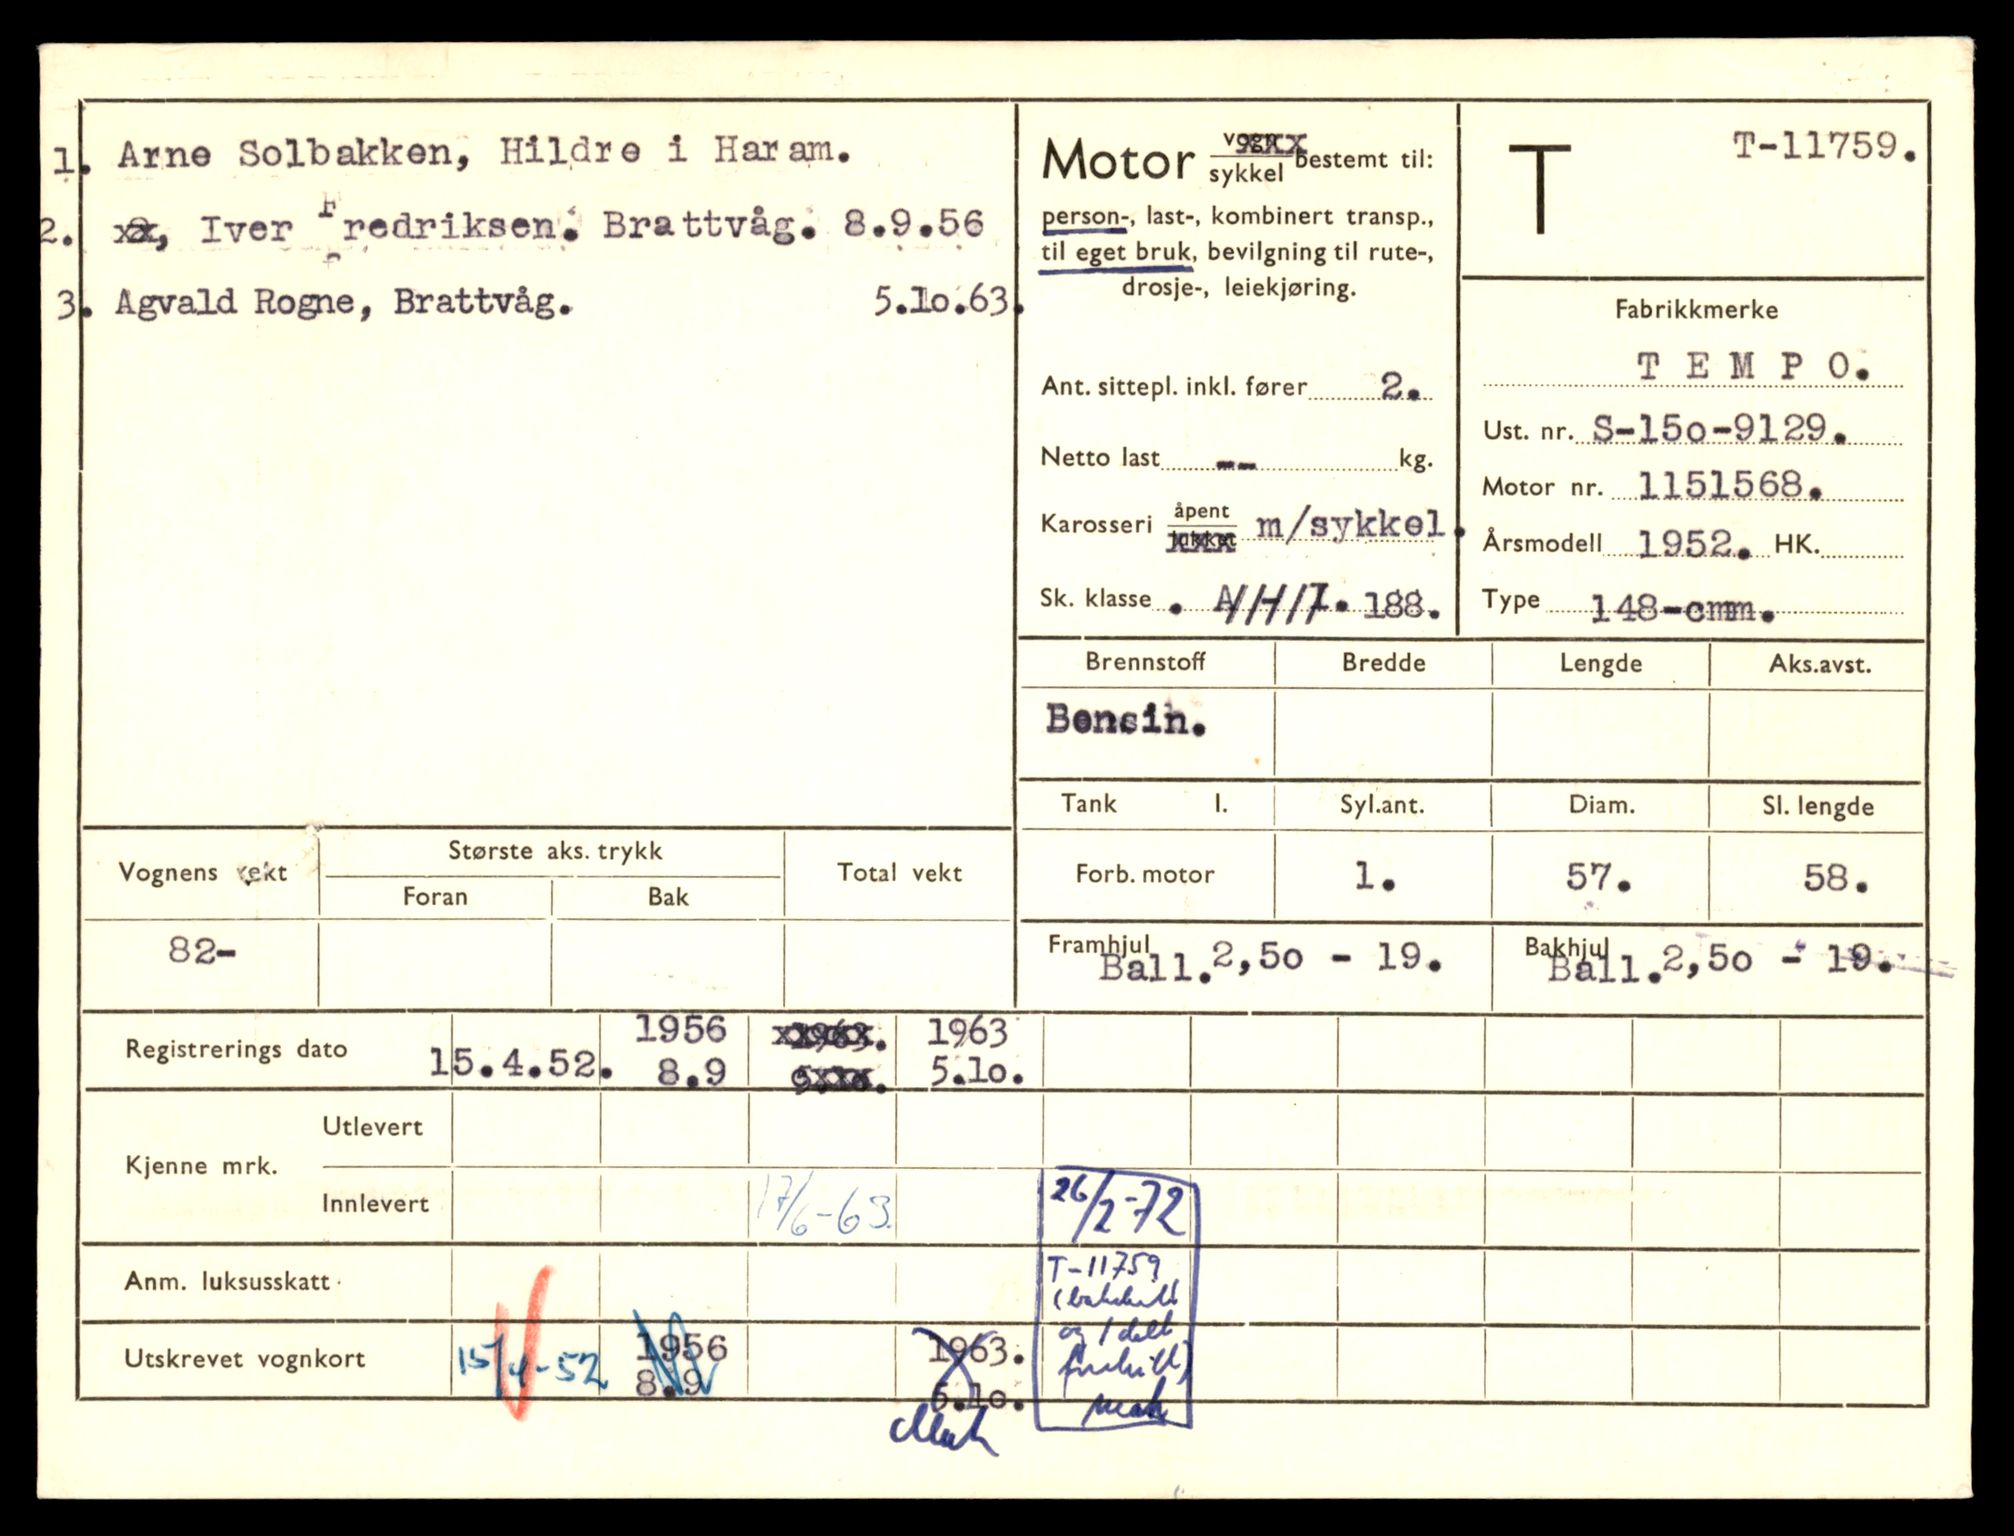 1. Arne Solbakken, Hildre i Haram.
2. xx, Iver Fredriksen. Brattvåg. 8.9.56
3. Agvald Rogne, Brattvåg. 5.10.63.
Motor vogn sykkel bestemt til:
person-, last-, kombinert transp.,
til eget bruk, bevilgning til rute-,
drosje-, leiekjøring.
Ant. sittepl. inkl. fører 2.
Netto last -- kg.
Karosseri åpent lukket m/sykkel.
Sk. klasse . A/H/I. 188.
T T-11759.
Fabrikkmerke
T E M P O.
Ust. nr. S-15o-9129.
Motor nr. 1151568.
Årsmodell 1952. HK.
Type 148-cmm.
Brennstoff Bredde Lengde Aks.avst.
Bensin.
Tank l. Syl.ant. Diam. Sl. lengde
Forb. motor 1. 57. 58.
Framhjul Ball. 2,5o - 19. Bakhjul Ball. 2,5o - 19.
Vognens vekt Største aks. trykk Total vekt
Foran Bak
82-
Registrerings dato 15.4.52. 1956 8.9 1963 5.1o.
Kjenne mrk. Utlevert
Innlevert 17/6-63. 26/2-72
Anm. luksusskatt T-11759
Utskrevet vognkort 15/4-52 1956 8.9 1963. 5.1o.
og 1 delt